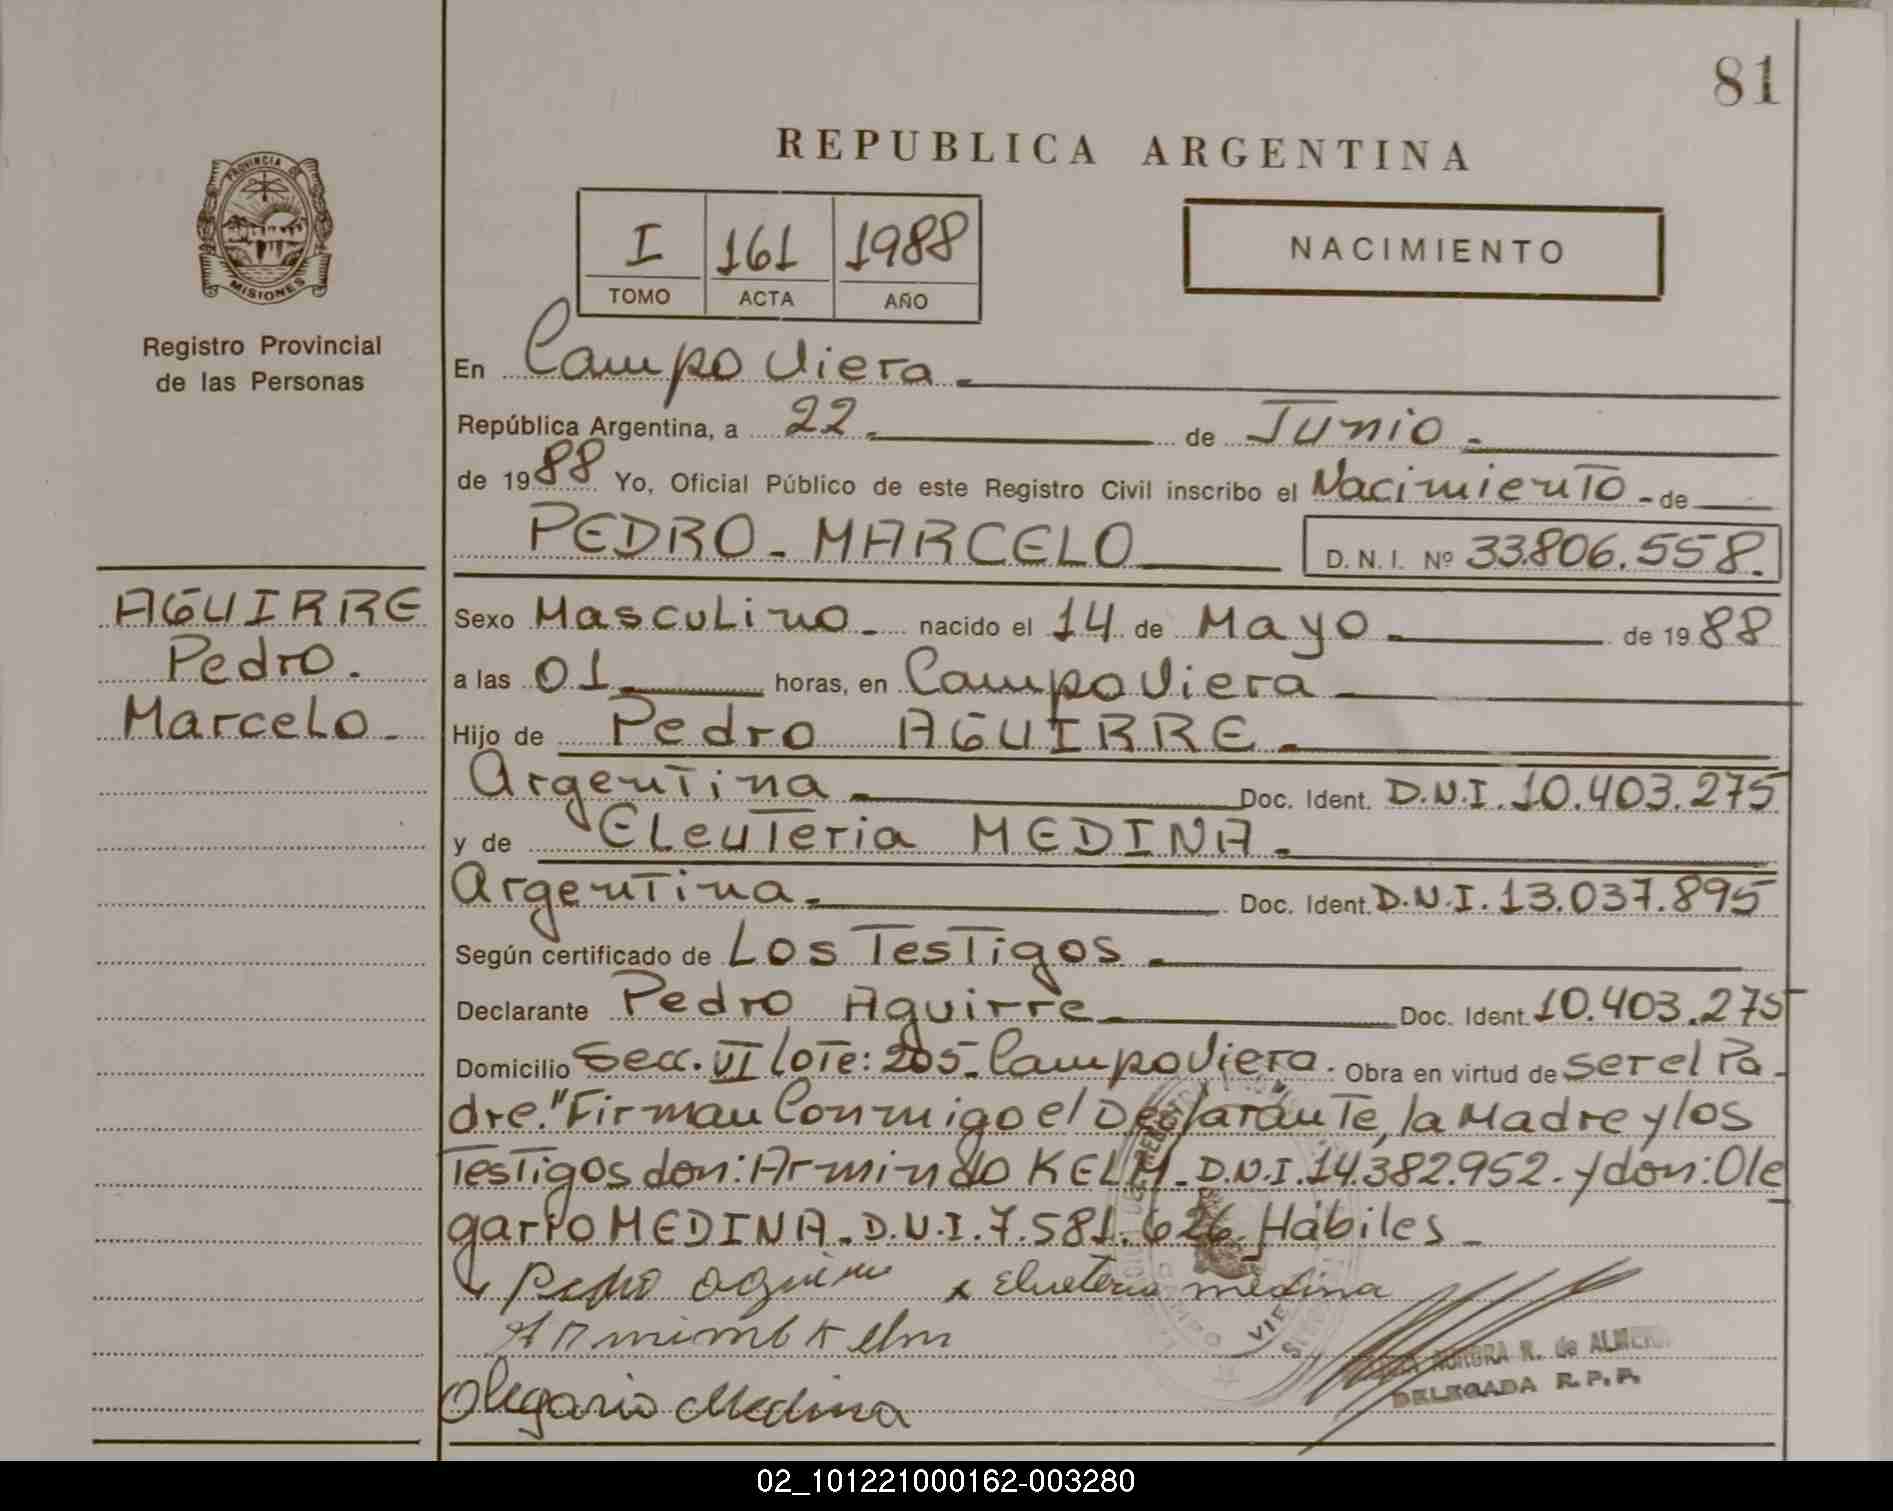 81
REPUBLICA ARGENTINA
PROVINCIA DE
MISIONES
I 161 1988
TOMO ACTA AÑO
NACIMIENTO
Registro Provincial
de las Personas
En Campo Viera
República Argentina, a 22 de Junio
de 1988 Yo, Oficial Público de este Registro Civil inscribo el Nacimiento de
PEDRO MARCELO D. N. I. Nº 33.806.558.
AGUIRRE
Pedro.
Marcelo
Sexo Masculino nacido el 14 de Mayo de 1988
a las 01 horas, en Campo Viera
Hijo de Pedro AGUIRRE
Argentina Doc. Ident. D.N.I. 10.403.275
y de Eleuteria MEDINA
Argentina Doc. Ident. D.N.I. 13.037.895
Según certificado de Los Testigos
Declarante Pedro Aguirre Doc. Ident. 10.403.275
Domicilio Secc. VI lote: 205 Campo Viera. Obra en virtud de ser el Pa-
dre. "Firman Conmigo el Declarante, la Madre y los
Testigos don: Armindo KELM. D.N.I. 14.382.952. y don: Ole
gario MEDINA. D.N.I. 7.581.626. Hábiles
Pedro aguirre x elueteria medina
Armimb Kelm
Olegario Medina
R. de
DELEGADA R.P.P.
02_101221000162-003280